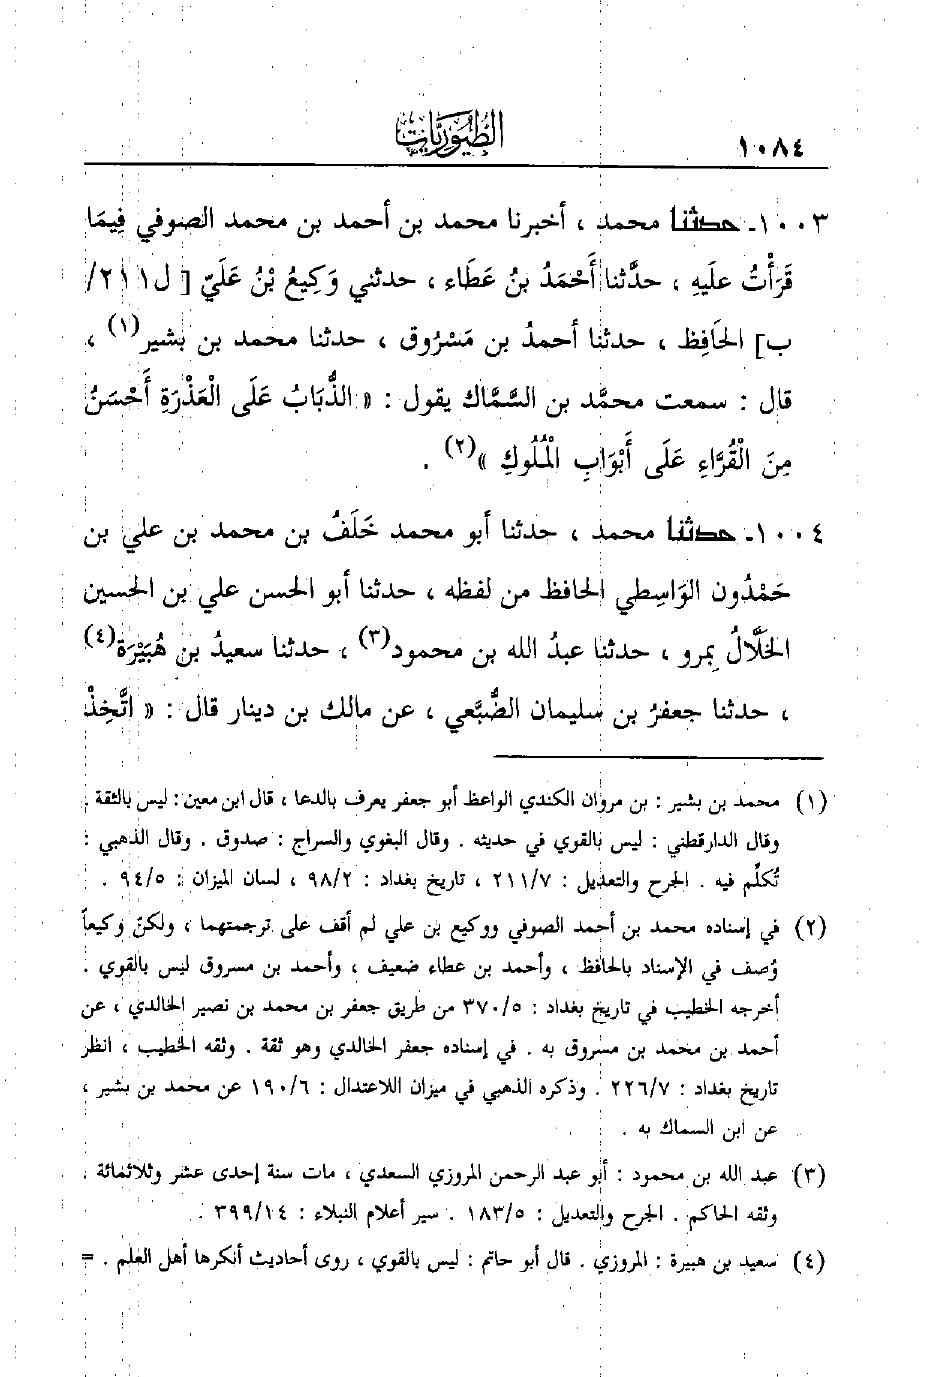 ١٠٨٤
الطيوريات
١٠٠٣ـ حدثنا محمد ، أخبرنا محمد بن أحمد بن محمد الصوفي فِيمَا
قَرَأْتُ علَيهِ ، حدَّثنا أَحْمَدُ بنُ عَطَاء ، حدثني وَكِيعُ بْنُ عَلَيّ [ ل٢١١/
ب] الحَافِظ ، حدثنا أحمدُ بن مَسْرُوق ، حدثنا محمد بن بشير(١) ،
قال : سمعت محمَّد بن السَّمَّاك يقول : « الذُّبَابُ عَلَى الْعَذْرَةِ أَحْسَنُ
مِنَ الْقُرَّاءِ عَلَى أَبْوَابِ الْمُلُوكِ »(٢) .
١٠٠٤ـ حدثنا محمد ، حدثنا أبو محمد خَلَفُ بن محمد بن علي بن
حَمْدُون الوَاسِطي الحافظ من لفظه ، حدثنا أبو الحسن علي بن الحسين
الخَلَّالُ بِمرو ، حدثنا عبدُ الله بن محمود(٣) ، حدثنا سعيدُ بن هُبَيْرَة(٤)
، حدثنا جعفرُ بن سليمان الضُّبَعي ، عن مالك بن دينار قال : « اتَّخِذْ
(١) محمد بن بشير : بن مروان الكندي الواعظ أبو جعفر يعرف بالدعا ، قال ابن معين : ليس بالثقة .
وقال الدارقطني : ليس بالقوي في حديثه . وقال البغوي والسراج : صدوق . وقال الذهبي :
تُكلِّم فيه . الجرح والتعديل : ٢١١/٧ ، تاريخ بغداد : ٩٨/٢ ، لسان الميزان : ٩٤/٥ .
(٢) في إسناده محمد بن أحمد الصوفي ووكيع بن علي لم أقف على ترجمتهما ، ولكنّ وكيعاً
وُصف في الإسناد بالحافظ ، وأحمد بن عطاء ضعيف ، وأحمد بن مسروق ليس بالقوي .
أخرجه الخطيب في تاريخ بغداد : ٣٧٠/٥ من طريق جعفر بن محمد بن نصير الخالدي ، عن
أحمد بن محمد بن مسروق به . في إسناده جعفر الخالدي وهو ثقة . وثقه الخطيب ، انظر
تاريخ بغداد : ٢٢٦/٧ . وذكره الذهبي في ميزان اللاعتدال : ١٩٠/٦ عن محمد بن بشير ،
عن ابن السماك به .
(٣) عبد الله بن محمود : أبو عبد الرحمن المروزي السعدي ، مات سنة إحدى عشر وثلاثمائة .
وثقه الحاكم . الجرح والتعديل : ١٨٣/٥ . سير أعلام النبلاء : ٣٩٩/١٤ .
(٤) سعيد بن هبيرة : المروزي . قال أبو حاتم : ليس بالقوي ، روى أحاديث أنكرها أهل العلم . =